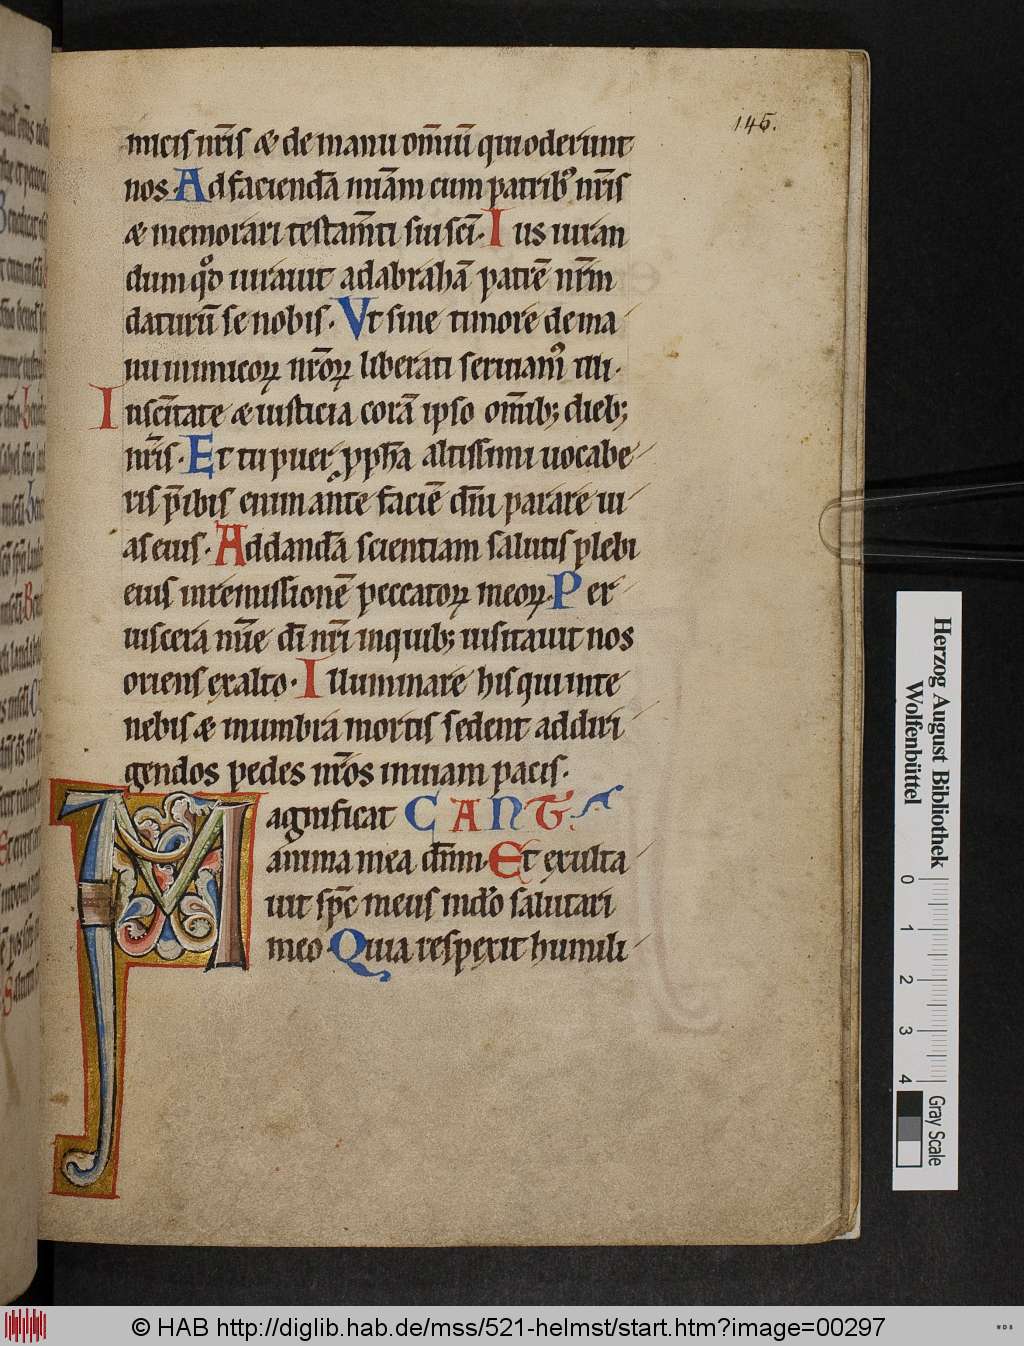 145.
micis nr̄is & de manu om̄iū qui oderunt
nos. Ad faciendā mīam cum patrib᷒ nr̄is
& memorari testam̄ti sui sc̄i. Ius iuran
dum qd̊ iurauit ad abrahā patrē nr̄m
daturū se nobis. Vt sine timore de ma
nu inimicoꝝ nr̄oꝝ liberati seruiam᷒ illi.
In sc̄itate & iusticia corā ipso om̄ib; dieb;
nr̄is. Et tu puer ꝓph̄a altissimi uocabe
ris p̄ibis enim ante faciē dn̄i parare ui
as eius. Ad dandā scientiam salutis plebi
eius in remissionē peccatoꝝ meoꝝ. Per
uiscera mīe dī nr̄i in quib; uisitauit nos
oriens ex alto. Illuminare his qui in te
nebis & in umbra mortis sedent ad diri
gendos pedes nr̄os in uiam pacis.
Magnificat CANT̄.
anima mea dn̄m. Et exulta
uit sp̄c meus in dō salutari
meo. Quia respexit humili
Herzog August Bibliothek
Wolfenbüttel
0 1 2 3 4
Gray Scale
© HAB http://diglib.hab.de/mss/521-helmst/start.htm?image=00297